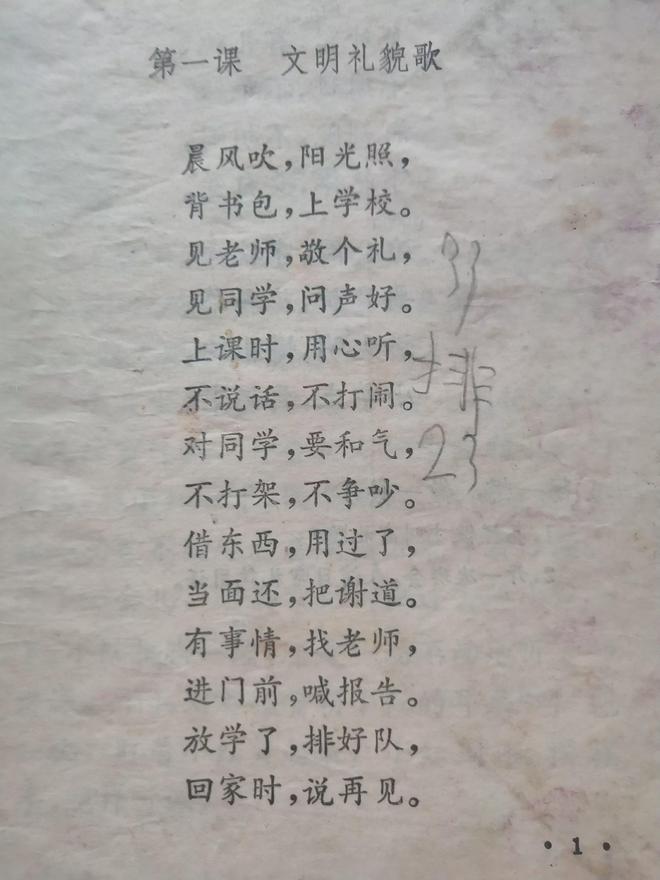 第一课 文明礼貌歌
晨风吹，阳光照，
背书包，上学校。
见老师，敬个礼，
见同学，问声好。
上课时，用心听，
不说话，不打闹。
对同学，要和气，
不打架，不争吵。
借东西，用过了，
当面还，把谢道。
有事情，找老师，
进门前，喊报告。
放学了，排好队，
回家时，说再见。
排
23
• 1 •